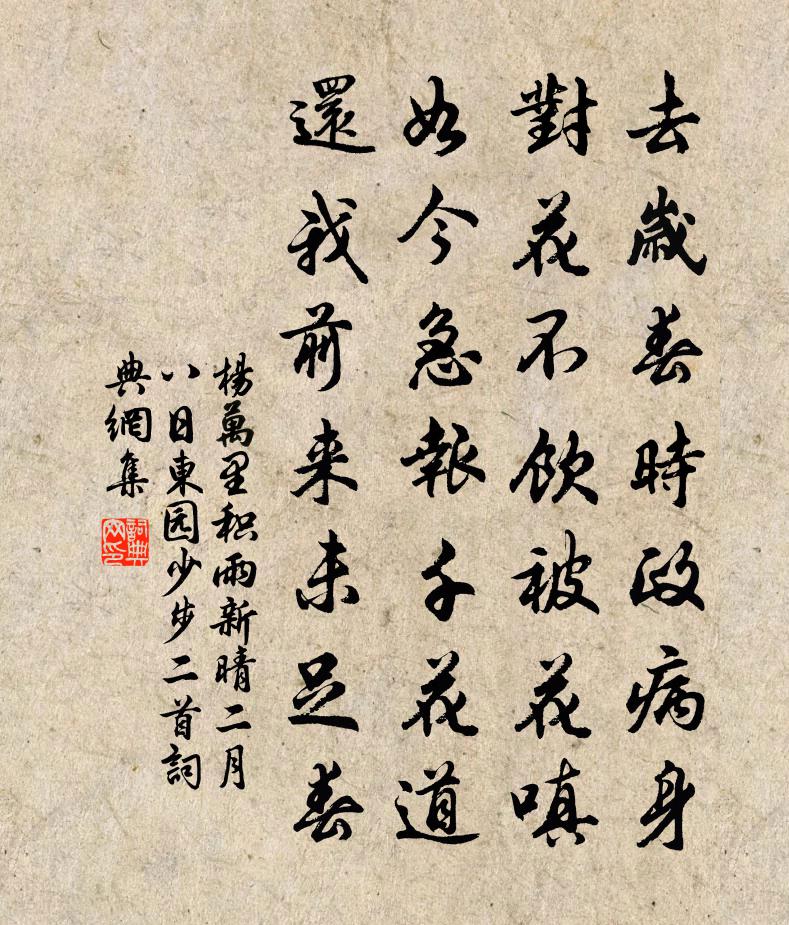 去歲春時政病身
對花不飲被花嗔
如今急報千花道
還我前来未足春
楊萬里积雨新晴二月
八日東园少步二首詞
典網集
詞典網印